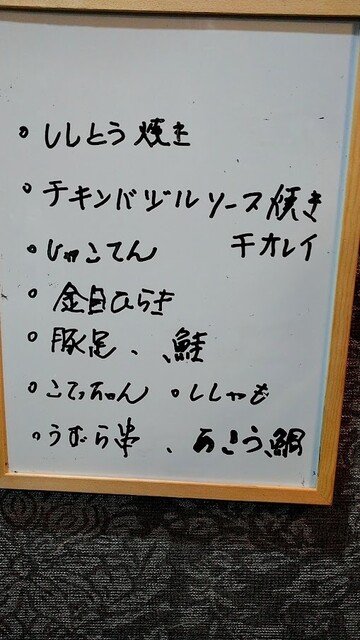 ◦ ししとう焼き
◦ チキンバジルソース焼き
◦ じゃこてん 干オレイ
◦ 金目ひらき
◦ 豚足、鮭
◦ こてっちゃん ◦ ししゃも
◦ うずら串、あこう鯛